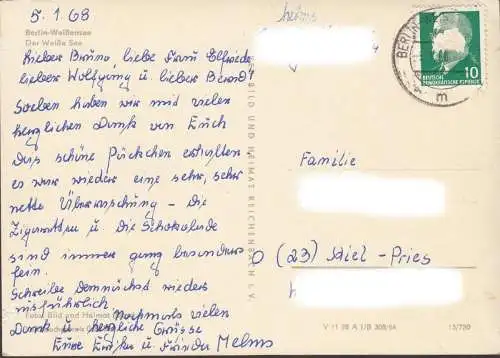 5.1.68
Berlin-Weißensee
Der Weiße See
Lieber Bruno, liebe Frau Elfriede,
lieber Wolfgang u. lieber Bernd!
Soeben haben wir mit vielen
herzlichen Dank von Euch
das schöne Päckchen erhalten
es war wieder eine sehr, sehr
nette Überraschung - die
Zigaretten u. die Schokolade
sind immer ganz besonders
fein.
Schreibe Demnächst wieder
ausführlich
Foto: Bild und Heimat
Nochmals vielen
Dank u. herzliche Grüsse
Eure
Melms
melms
BILD UND HEIMAT REICHENBACH I. V.
BERLIN
DEUTSCHE
DEMOKRATISCHE REPUBLIK
10
m
Familie
(23) Kiel-Pries
V 11 28 A 1/B 308/64
13/720